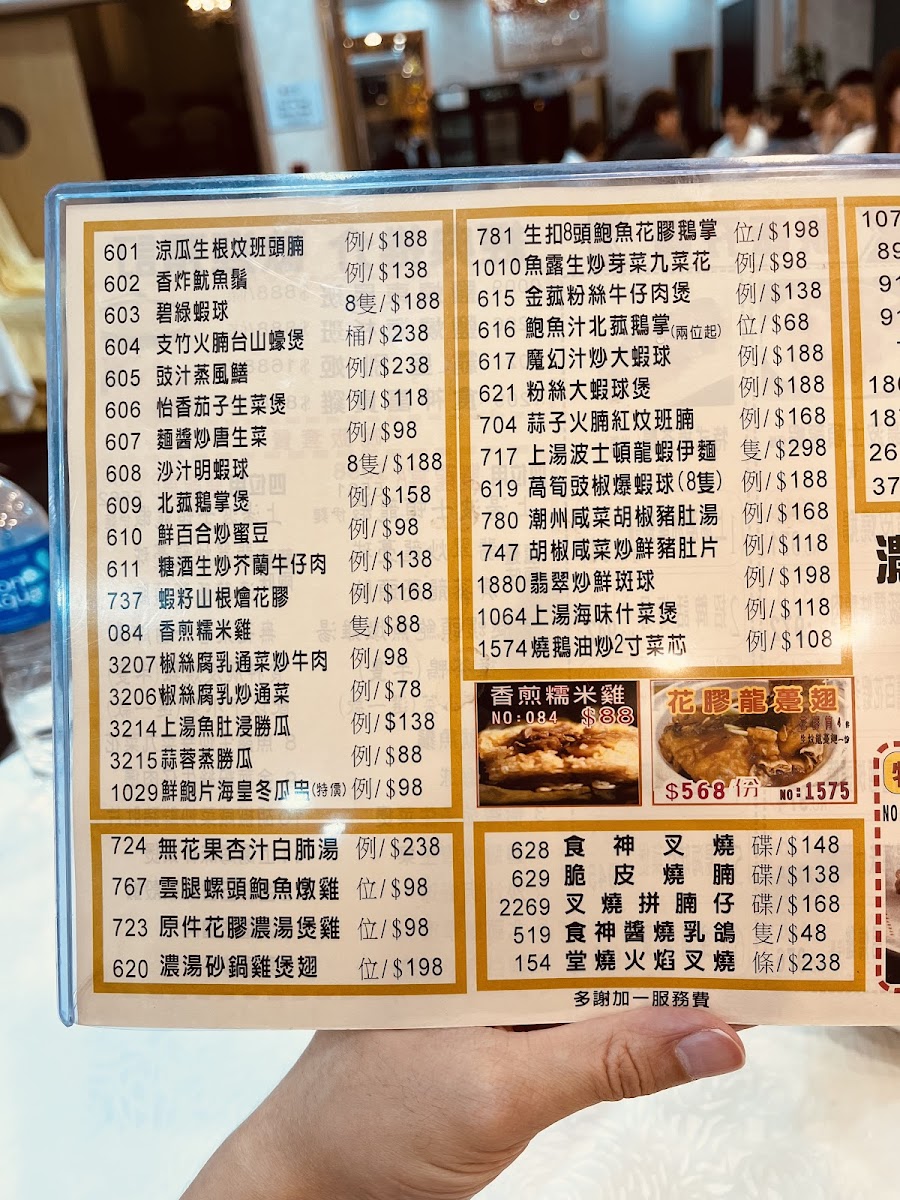 601 涼瓜生根炆班頭腩 例/$188
602 香炸魷魚鬚 例/$138
603 碧綠蝦球 8隻/$188
604 支竹火腩台山蠔煲 桶/$238
605 豉汁蒸風鱔 例/$238
606 怡香茄子生菜煲 例/$118
607 麵醬炒唐生菜 例/$98
608 沙汁明蝦球 8隻/$188
609 北菰鵝掌煲 例/$158
610 鮮百合炒蜜豆 例/$98
611 糖酒生炒芥蘭牛仔肉 例/$138
737 蝦籽山根燴花膠 例/$168
084 香煎糯米雞 隻/$88
3207 椒絲腐乳通菜炒牛肉 例/98
3206 椒絲腐乳炒通菜 例/$78
3214 上湯魚肚浸勝瓜 例/$138
3215 蒜蓉蒸勝瓜 例/$88
1029 鮮鮑片海皇冬瓜粒(特價) 例/$98
724 無花果杏汁白肺湯 例/$238
767 雲腿螺頭鮑魚燉雞 位/$98
723 原件花膠濃湯煲雞 位/$98
620 濃湯砂鍋雞煲翅 位/$198
781 生扣8頭鮑魚花膠鵝掌 位/$198
1010 魚露生炒芽菜九菜花 例/$98
615 金菰粉絲牛仔肉煲 例/$138
616 鮑魚汁北菰鵝掌(兩位起) 位/$68
617 魔幻汁炒大蝦球 例/$188
621 粉絲大蝦球煲 例/$188
704 蒜子火腩紅炆班腩 例/$168
717 上湯波士頓龍蝦伊麵 隻/$298
619 萵筍豉椒爆蝦球(8隻) 例/$188
780 潮州咸菜胡椒豬肚湯 例/$168
747 胡椒咸菜炒鮮豬肚片 例/$118
1880 翡翠炒鮮斑球 例/$198
1064 上湯海味什菜煲 例/$118
1574 燒鵝油炒2寸菜芯 例/$108
香煎糯米雞
NO:084 $88
花膠龍躉翅
$568份 NO:1575
628 食神叉燒 碟/$148
629 脆皮燒腩 碟/$138
2269 叉燒拼腩仔 碟/$168
519 食神醬燒乳鴿 隻/$48
154 堂燒火焰叉燒 條/$238
多謝加一服務費
107
89
91
91
180
187
26
37
濃
NO